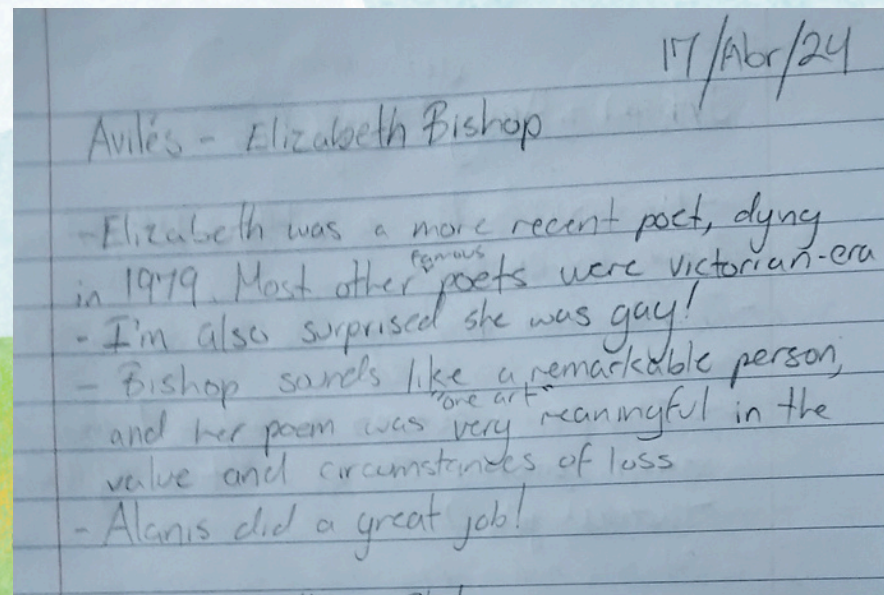 17/Abr/24
Avilés - Elizabeth Bishop
- Elizabeth was a more recent poet, dyng
in 1979. Most other famous poets were victorian-era
- I'm also surprised she was gay!
- Bishop sounds like a remarkable person,
and her poem "one art" was very meaningful in the
value and circumstances of loss
- Alanis did a great job!